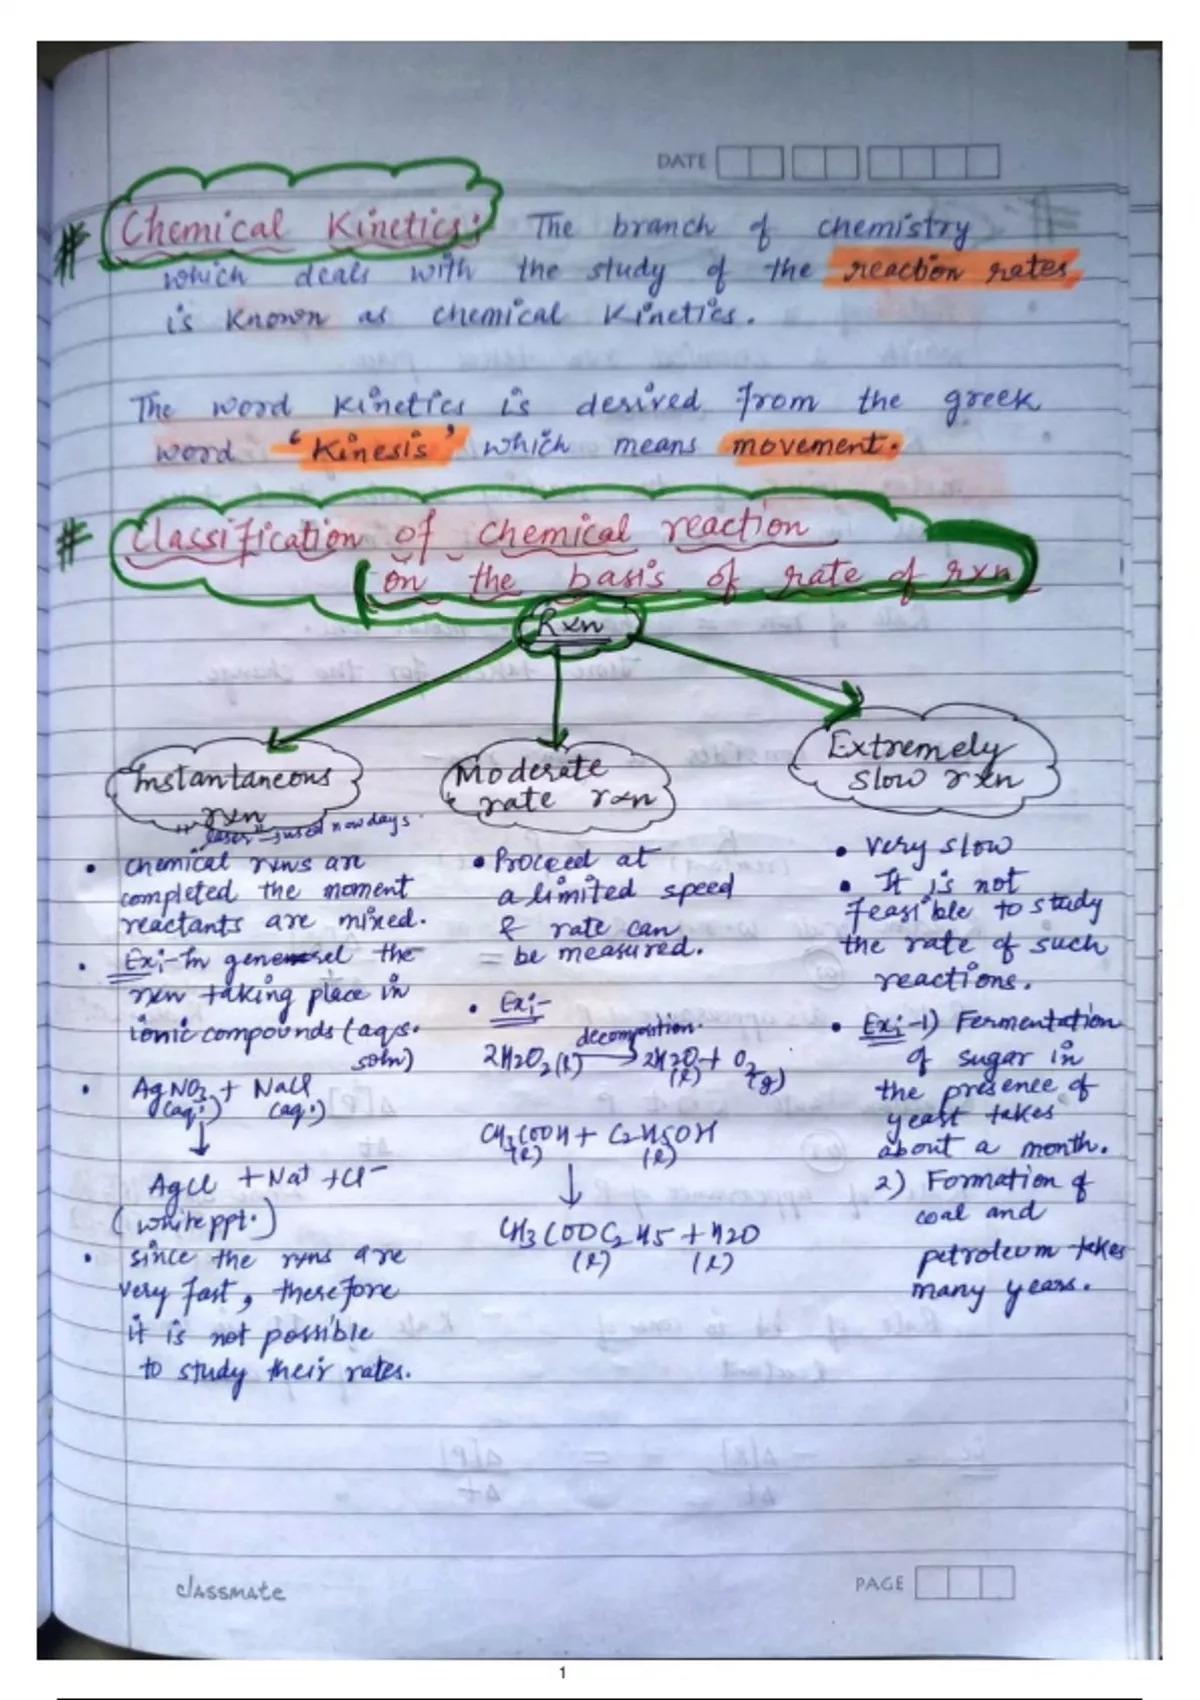 DATE
# Chemical Kinetics: The branch of chemistry
which deals with the study of the reaction rates
is known as chemical kinetics.
The word kinetics is derived from the greek
word 'Kinesis' which means movement.
# Classification of chemical reaction
on the basis of rate of rxn
Rxn
Instantaneous
rxn
"laser" used nowdays.
• chemical rxns are
completed the moment
reactants are mixed.
• Ex:- In generel the
rxn taking place in
ionic compounds (aqs.
soln)
• AgNO3 + NaCl
(aq.) (aq.)
↓
AgCl + Na+ + Cl-
(white ppt.)
• since the rxns are
very fast, therefore
it is not possible
to study their rates.
Moderate
rate rxn
• Proceed at
a limited speed
& rate can
be measured.
• Ex:-
decomposition.
2H2O2(l) → 2H2O + O2
(l) (g)
CH3COOH + C2H5OH
(l) (l)
↓
CH3COOC2H5 + H2O
(l) (l)
Extremely
slow rxn
• very slow
• It is not
feasible to study
the rate of such
reactions.
• Ex:- 1) Fermentation
of sugar in
the presence of
yeast takes
about a month.
2) Formation of
coal and
petroleum takes
many years.
classmate
PAGE
1